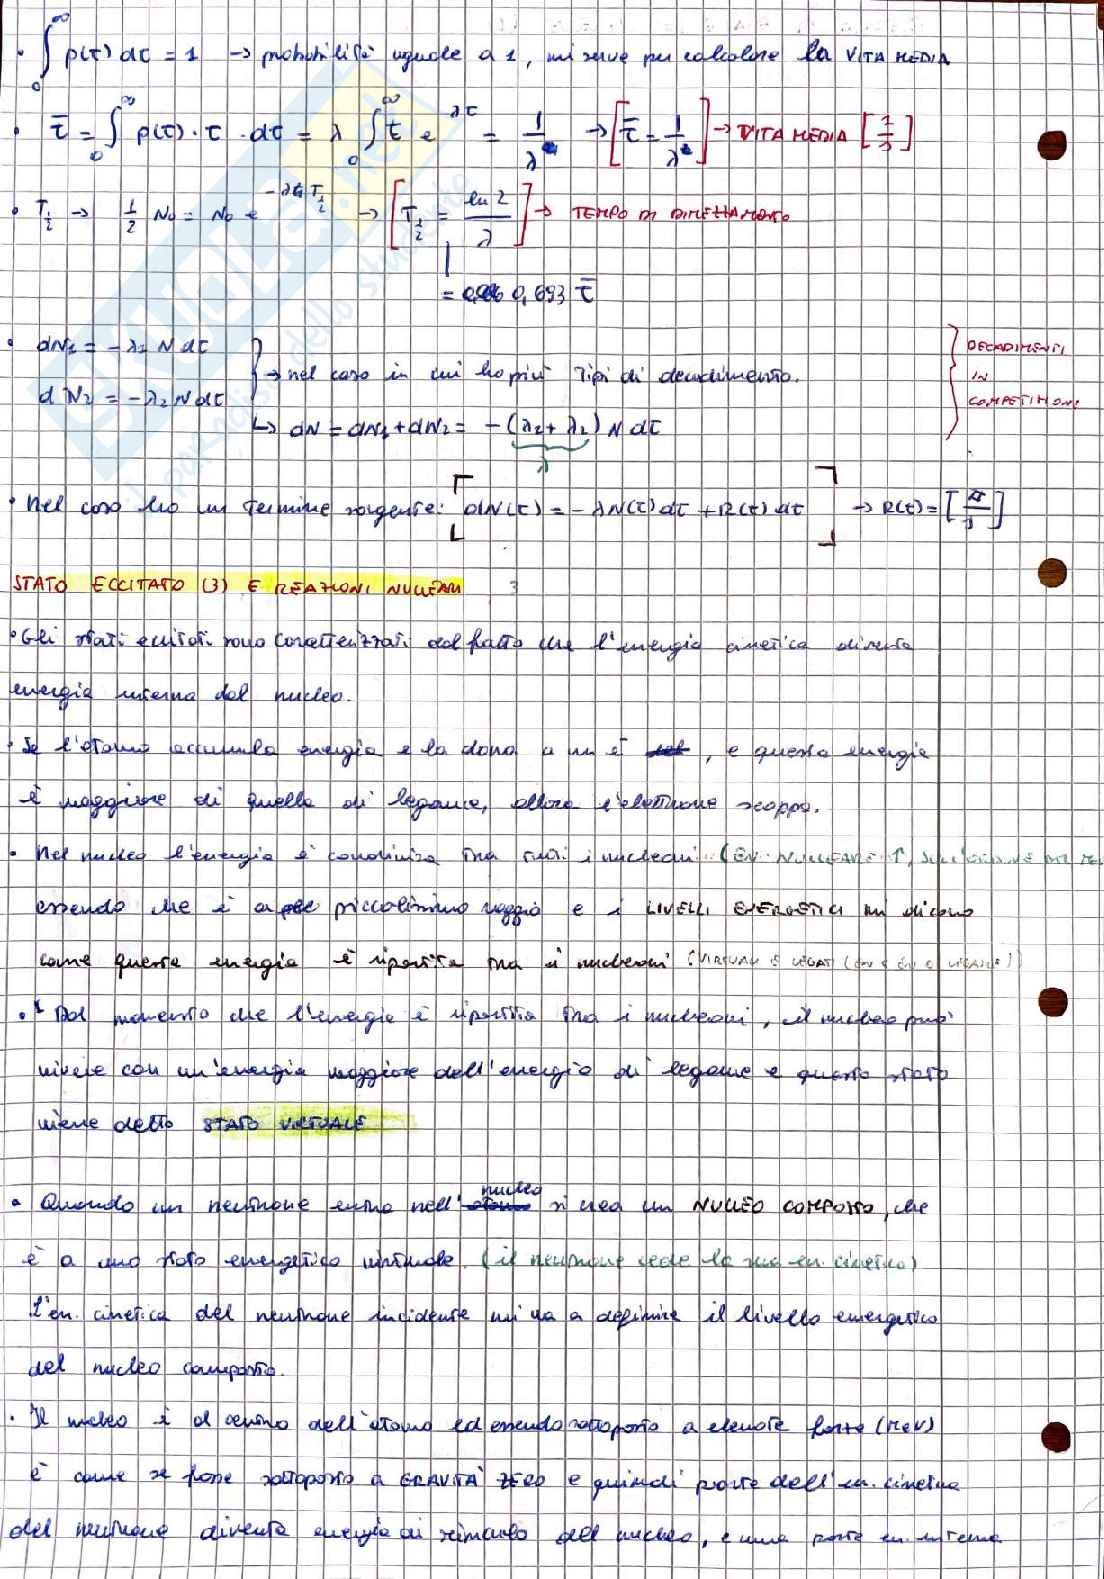 • ∫₀^∞ p(t) dt = 1 → probabilità uguale a 1, mi serve per calcolare la VITA MEDIA
• t̄ = ∫₀^∞ p(t) · t · dt = λ ∫₀^∞ t e^{λt} = 1/λ → [t̄ = 1/λ] → VITA MEDIA
• T½ → ½ N₀ = N₀ e^{-λ T½} → [T½ = ln 2 / λ] → TEMPO DI DIMEZZAMENTO
= 0,693 t̄
• dN₁ = -λ₁ N dt
dN₂ = -λ₂ N dt
→ nel caso in cui ho più tipi di decadimento.
↳ dN = dN₁ + dN₂ = -(λ₁ + λ₂) N dt
λ
DECADIMENTI
IN
COMPETIZIONE
• Nel caso ho un termine sorgente: [dN(t) = -λN(t) dt + R(t) dt] → R(t) =
STATO ECCITATO (3) E REAZIONI NUCLEARI
3
• Gli stati eccitati sono caratterizzati dal fatto che l'energia cinetica diventa
energia interna del nucleo.
• Se l'atomo accumula energia e la dona a un e⁻, e questa energia
è maggiore di quella di legame, allora l'elettrone scappa.
• Nel nucleo l'energia è condivisa tra tutti i nucleoni (EN. NUCLEARE ↑,
essendo che è a piccolissimo raggio e i LIVELLI ENERGETICI mi dicono
come questa energia è ripartita tra i nucleoni (VIRTUALI E LEGATI
• Dal momento che l'energia è ripartita tra i nucleoni, il nucleo può
vivere con un'energia maggiore dell'energia di legame e questo stato
viene detto STATO VIRTUALE
• Quando un neutrone entra nell' nucleo si crea un NUCLEO COMPOSTO, che
è a uno stato energetico virtuale. (il neutrone cede la sua en. cinetica)
L'en. cinetica del neutrone incidente mi va a definire il livello energetico
del nucleo composto.
• Il nucleo è al centro dell'atomo ed essendo sottoposto a elevate forze (MeV)
è come se fosse sottoposto a GRAVITÀ ZERO e quindi parte dell'en. cinetica
del neutrone diventa energia di rinculo del nucleo, e una parte en. interna